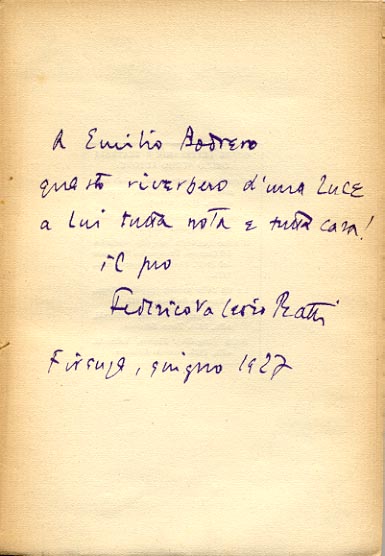 A Emilio Bodrero
questo riverbero d'una luce
a lui tutta nota e tutta cara!
il suo
Federico Valerio Ratti
Firenze, giugno 1927